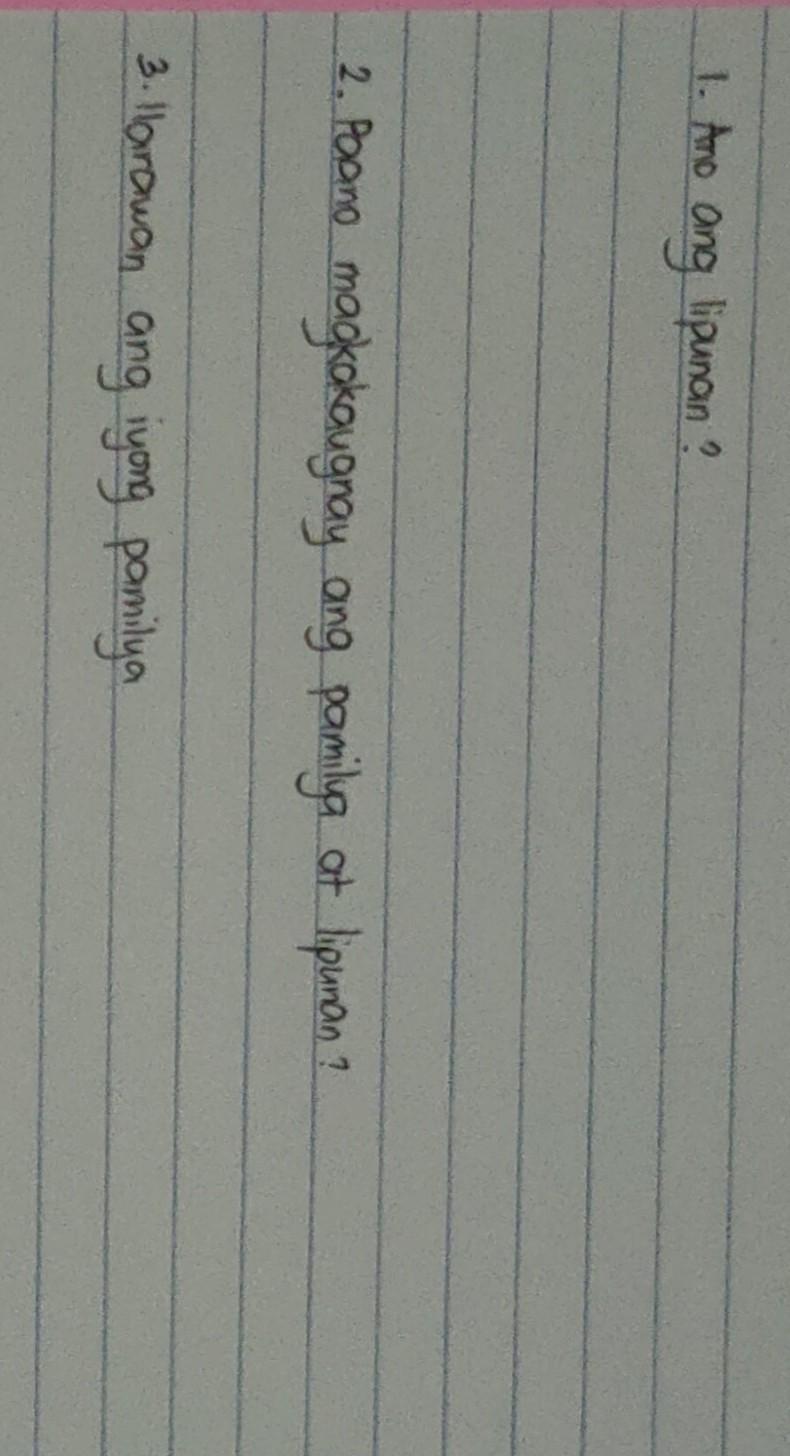 1. Ano ang lipunan?
2. Paano magkakaugnay ang pamilya at lipunan?
3. Ilarawan ang iyong pamilya